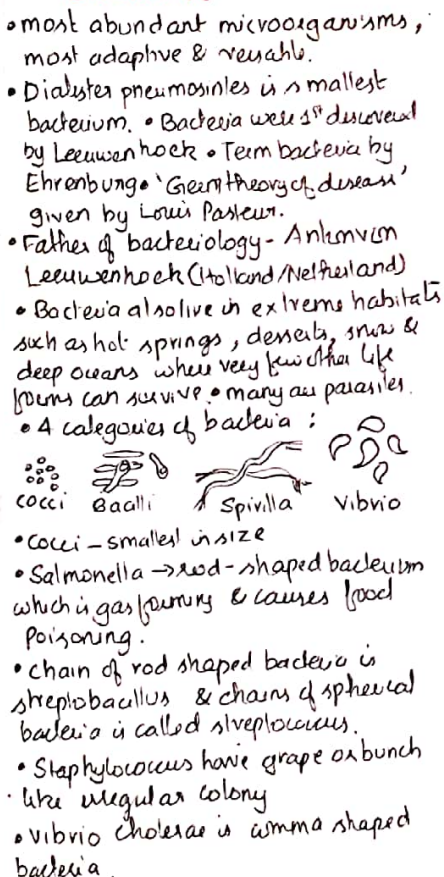 • most abundant microorganisms,
most adaptive & versatile.
• Dialister pneumosintes is smallest
bacterium. • Bacteria were 1st discovered
by Leeuwenhock • Term bacteria by
Ehrenburg • 'Germ theory of disease'
given by Louis Pasteur.
• Father of bacteriology - Antonvan
Leeuwenhock (Holland/Netherland)
• Bacteria also live in extreme habitats
such as hot springs, desserts, snow &
deep oceans where very few other life
forms can survive. • many are parasites.
• 4 categories of bacteria :
cocci Bacilli Spirilla Vibrio
• cocci - smallest in size
• Salmonella → rod-shaped bacterium
which is gas forming & causes food
poisoning.
• chain of rod shaped bacteria is
streptobacillus & chains of spherical
bacteria is called streptococcus.
• Staphylococcus have grape or bunch
like irregular colony
• vibrio cholerae is comma shaped
bacteria